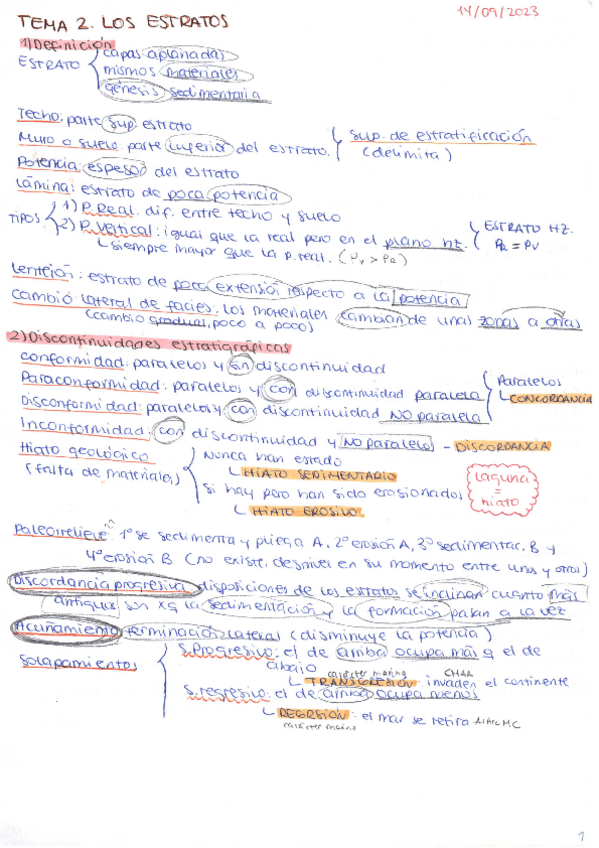 14/09/2023
TEMA 2. LOS ESTRATOS
1) Definición
ESTRATO
capas aplanadas
mismos materiales
génesis sedimentaria
Techo: parte sup. estrato
Muro o suelo: parte inferior del estrato.
sup. de estratificación
(delimita)
Potencia: espesor del estrato
Lámina: estrato de poca potencia
TIPOS
1) P. Real. dif. entre techo y suelo
2) P. Vertical: igual que la real pero en el plano hz.
ESTRATO HZ.
PR = PV
siempre mayor que la p. real. (PV > PR)
Lentejón: estrato de poca extensión respecto a la potencia
Cambio lateral de facies: los materiales cambian de unas zonas a otras
(cambio gradual, poco a poco)
2) Discontinuidades estratigráficas
Conformidad: paralelos y sin discontinuidad
Paraconformidad: paralelos y con discontinuidad paralela
Disconformidad: paralelos y con discontinuidad NO paralela
Paralelos
CONCORDANCIA
Inconformidad: con discontinuidad y NO paralelo - DISCORDANCIA
Hiato geológico
(falta de materiales)
Nunca han estado
HIATO SEDIMENTARIO
si hay pero han sido erosionados
HIATO EROSIVO
Laguna
=
hiato
Paleorrelieve: 1º se sedimenta y pliega A, 2º erosión A, 3º sedimentac. B y
4º erosión B (no existe, desnivel en su momento entre unos y otros)
Discordancia progresiva: disposiciones de los estratos se inclinan cuanto más
antiguos son xq la sedimentación y la formación pasan a la vez
Acuñamiento: terminación lateral (disminuye la potencia)
Solapamientos
S. Progresivo: el de arriba ocupa más q el de
abajo
carácter marino
CMAA
TRANSGRESIÓN: invaden el continente
S. regresivo: el de arriba ocupa menos
REGRSIÓN: el mar se retira
carácter marino
1